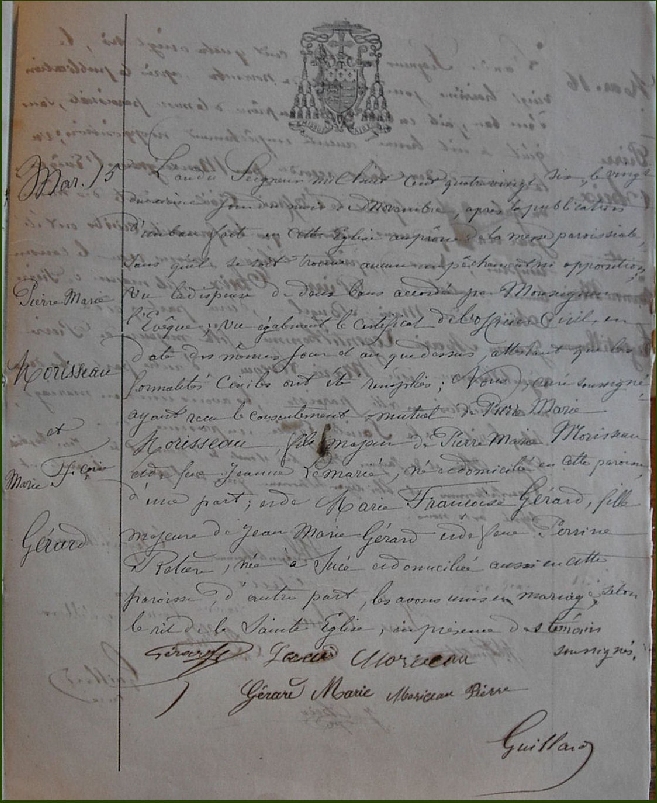 Mar. 15
Pierre Marie
Morisseau
et
Marie Fçoise
Gérard
L'an du Seigneur mil huit cent quatre vingt six, le vingt
jour de Novembre, après la publication
d'un ban faite en cette Eglise au prône de la messe paroissiale,
sans qu'il se soit trouvé aucun empêchement ni opposition
vu la dispense de deux bans accordée par Monseigneur
l'Evêque, vu également le certificat de l'officier Civil en
date des mêmes jour et an que dessus, attestant que les
formalités Civiles ont été remplies ; Nous soussigné
ayant reçu le consentement mutuel de Pierre Marie
Morisseau, fils majeur de Pierre Marie Morisseau
et de feue Jeanne Lemarié, né et domicilié en cette paroisse
d'une part ; et de Marie Françoise Gérard, fille
majeure de Jean Marie Gérard et de feue Perrine
, née à et domiciliée aussi en cette
paroisse, d'autre part, les avons unis en mariage, selon
le rit de la Sainte Eglise, en présence des témoins
soussignés.
Gérard Morisseau
Gérard Marie Morisseau Pierre
Guillard